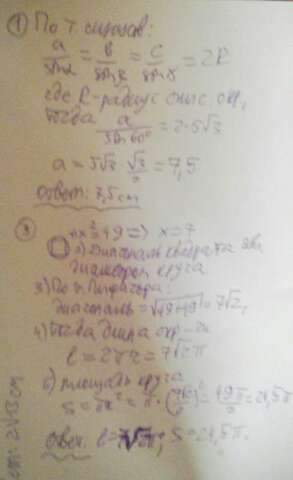 ① По Т синусов:
a/sinα = b/sinβ = c/sinγ = 2R
где R - радиус опис. окр,
тогда a/sin60° = 2·5√3
a = 5√3 · √3/2 = 7,5
ответ: 7,5 cm
③
x² = 49 => x = 7
2) Диагональ квадрата
диаметром круга
3) По т. Пифагора:
диагональ = √49+49 = 7√2,
4) Тогда длина окр-ти
l = 2πr = 7√2π
5) площадь круга
S = πr² = π· = 49π/2 = 24,5π
ответ: S = 24,5π.
2√13 cm